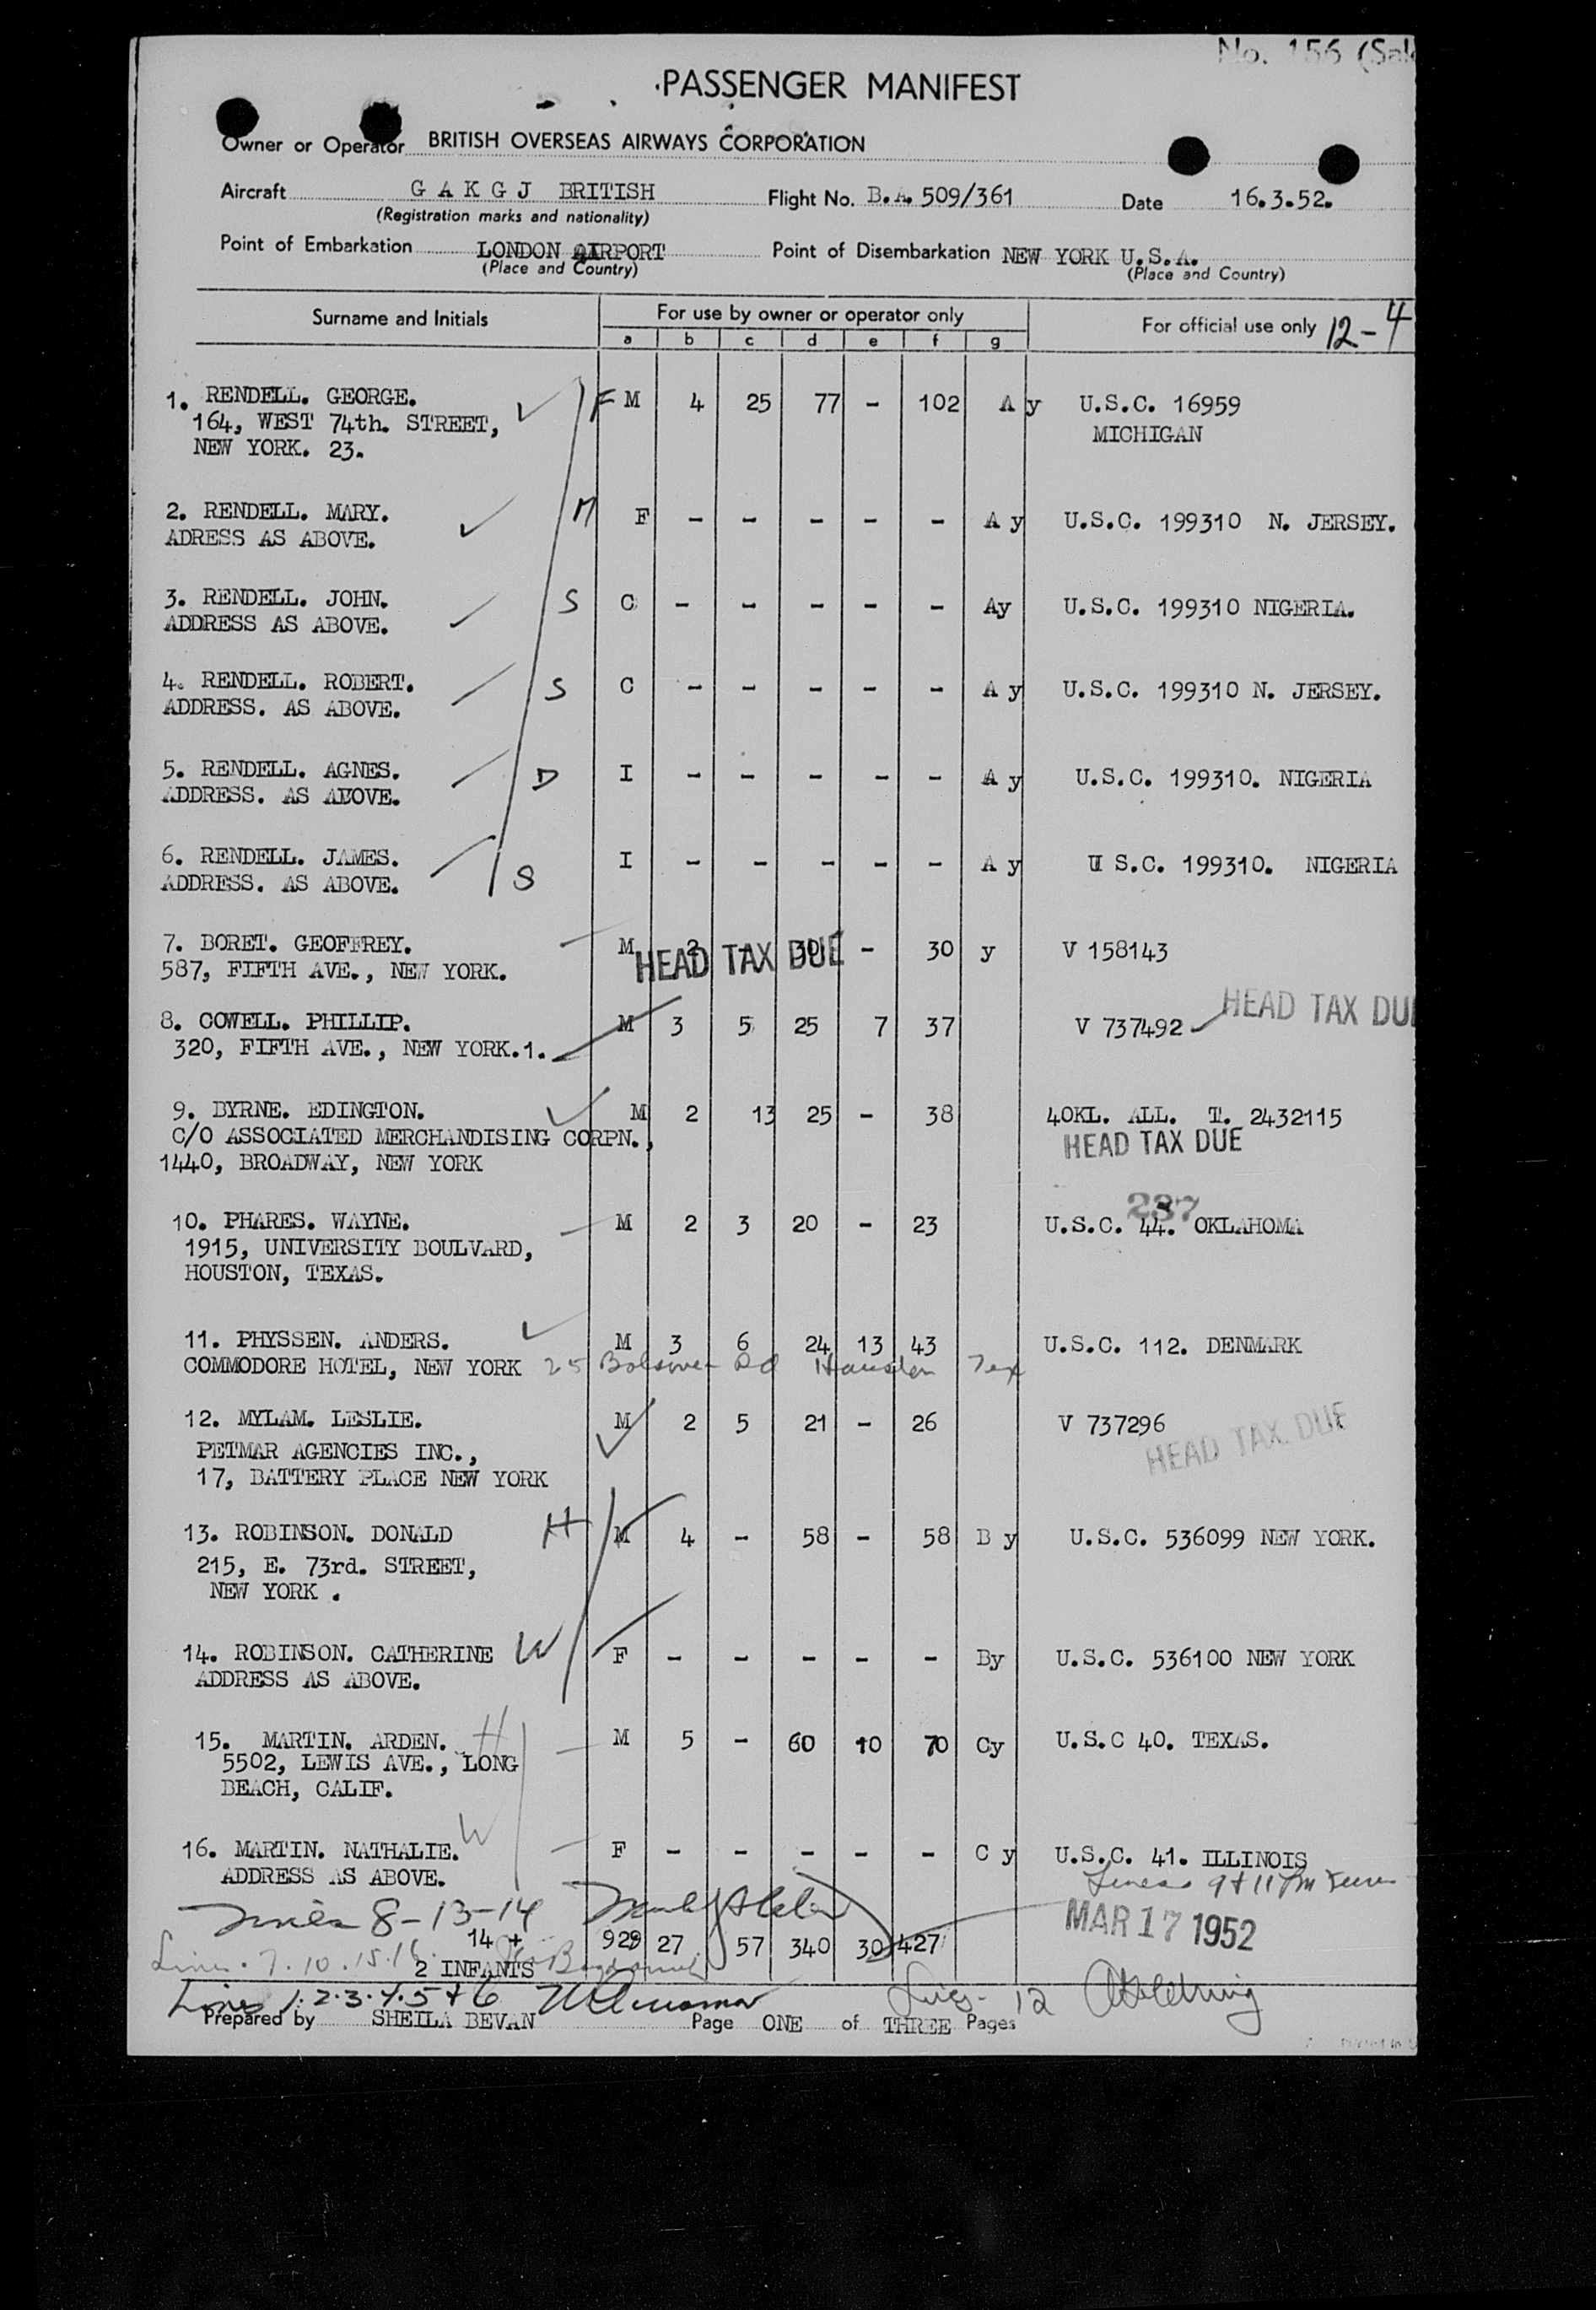 No. 156 (Sal
PASSENGER MANIFEST
Owner or Operator BRITISH OVERSEAS AIRWAYS CORPORATION
Aircraft G A K G J BRITISH Flight No. B.A. 509/361 Date 16.3.52.
(Registration marks and nationality)
Point of Embarkation LONDON AIRPORT Point of Disembarkation NEW YORK U.S.A.
(Place and Country) (Place and Country)
Surname and Initials For use by owner or operator only For official use only 12-4
a b c d e f g
1. RENDELL. GEORGE. F M 4 25 77 - 102 A y U.S.C. 16959
164, WEST 74th. STREET, MICHIGAN
NEW YORK. 23.
2. RENDELL. MARY. M F - - - - - A y U.S.C. 199310 N. JERSEY.
ADRESS AS ABOVE.
3. RENDELL. JOHN. S C - - - - - Ay U.S.C. 199310 NIGERIA.
ADDRESS AS ABOVE.
4. RENDELL. ROBERT. S C - - - - - A y U.S.C. 199310 N. JERSEY.
ADDRESS. AS ABOVE.
5. RENDELL. AGNES. D I - - - - - A y U.S.C. 199310. NIGERIA
ADDRESS. AS ABOVE.
6. RENDELL. JAMES. S I - - - - - A y U S.C. 199310. NIGERIA
ADDRESS. AS ABOVE.
7. BORET. GEOFFREY. M 2 - 30 - 30 y V 158143
HEAD TAX DUE
587, FIFTH AVE., NEW YORK.
8. COWELL. PHILLIP. M 3 5 25 7 37 V 737492 HEAD TAX DU
320, FIFTH AVE., NEW YORK.1.
9. BYRNE. EDINGTON. M 2 13 25 - 38 4OKL. ALL. T. 2432115
C/O ASSOCIATED MERCHANDISING CORPN., HEAD TAX DUE
1440, BROADWAY, NEW YORK
237
10. PHARES. WAYNE. M 2 3 20 - 23 U.S.C. 44. OKLAHOMA
1915, UNIVERSITY BOULVARD,
HOUSTON, TEXAS.
11. PHYSSEN. ANDERS. M 3 6 24 13 43 U.S.C. 112. DENMARK
COMMODORE HOTEL, NEW YORK 25 Bolsover Rd Houston Tex
12. MYLAM. LESLIE. M 2 5 21 - 26 V 737296
PETMAR AGENCIES INC., HEAD TAX DUE
17, BATTERY PLACE NEW YORK
13. ROBINSON. DONALD H M 4 - 58 - 58 B y U.S.C. 536099 NEW YORK.
215, E. 73rd. STREET,
NEW YORK .
14. ROBINSON. CATHERINE W F - - - - - By U.S.C. 536100 NEW YORK
ADDRESS AS ABOVE.
15. MARTIN. ARDEN. H M 5 - 60 10 70 Cy U.S.C 40. TEXAS.
5502, LEWIS AVE., LONG
BEACH, CALIF.
16. MARTIN. NATHALIE. W F - - - - - C y U.S.C. 41. ILLINOIS
ADDRESS AS ABOVE. Lines 9 + 11
Lines 8-13-14 MAR 17 1952
14 + 27 57 340 30 427
Lines 7.10.15.16. 2 INFANTS
Lines 1.2.3.4.5 + 6 Lines 12
Prepared by SHEILA BEVAN Page ONE of THREE Pages